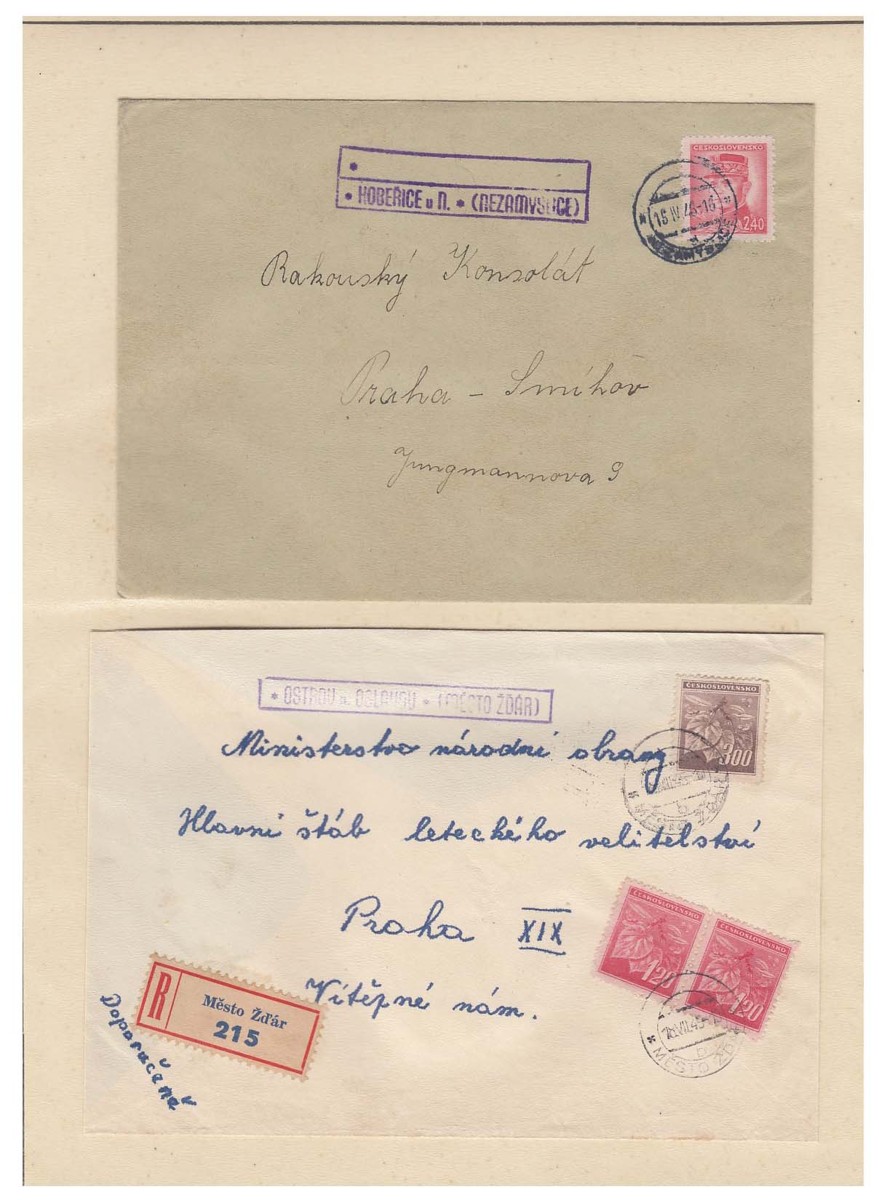 ČESKOSLOVENSKO
2.40
* HOBEŘICE u N. * (NEZAMYSLICE)
Rakouský Konsolát
Praha - Smíhov
Jungmannova 9
* OSTROV n. OSLAVOU * (MĚSTO ŽĎÁR)
ČESKOSLOVENSKO
3.00
Ministerstvo národní obrany
Hlavní štáb leteckého velitelství
Praha XIX
Vítězné nám.
ČESKOSLOVENSKO
1.20
ČESKOSLOVENSKO
1.20
MĚSTO ŽĎÁR
R Město Žďár
215
Doporučeně